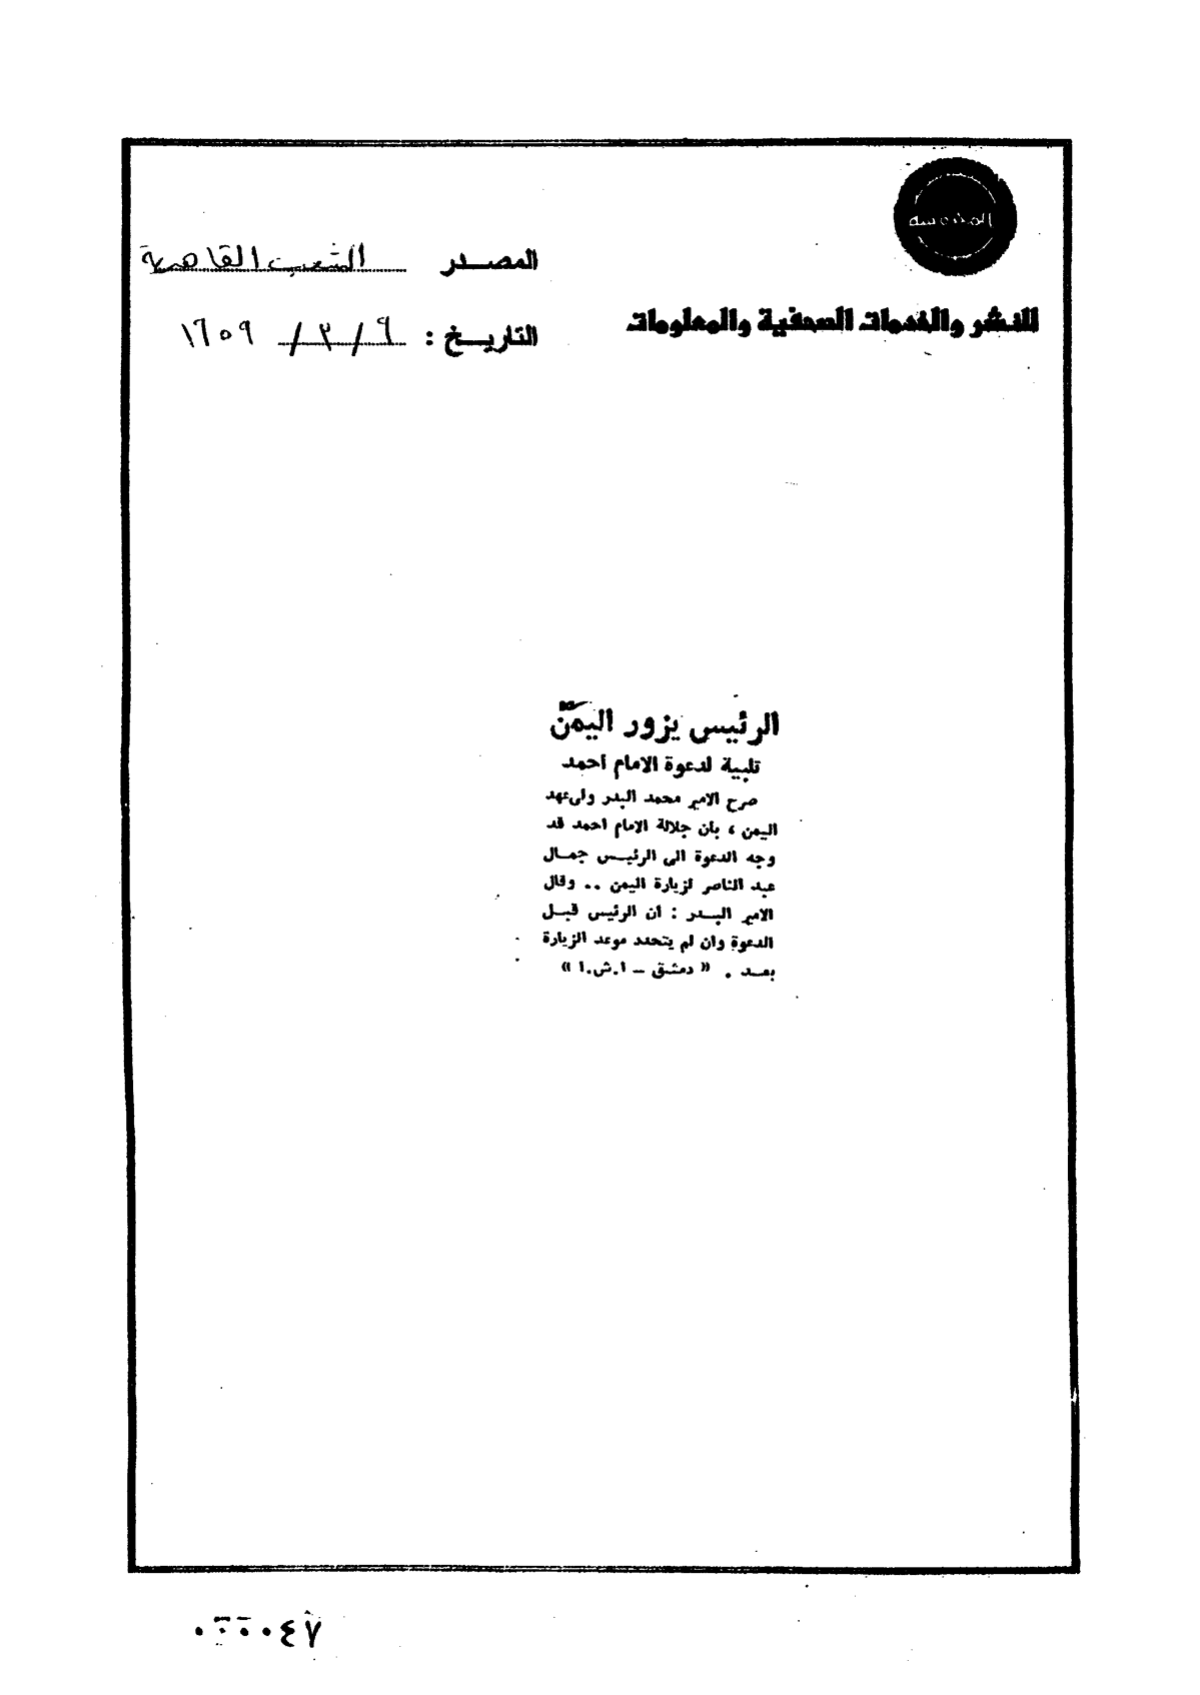 المحروسة
للنشر والخدمات الصحفية والمعلومات
المصدر الشعب القاهرية
التاريخ : ٩ / ٣ / ١٩٥٩
الرئيس يزور اليمن
تلبية لدعوة الامام احمد
صرح الامير محمد البدر ولى عهد
اليمن ، بأن جلالة الامام احمد قد
وجه الدعوة الى الرئيس جمال
عبد الناصر لزيارة اليمن .. وقال
الامير البدر : ان الرئيس قبل
الدعوة وان لم يتحدد موعد الزيارة
بعد . « دمشق – ا.ش.ا »
٠٠٠٠٤٧